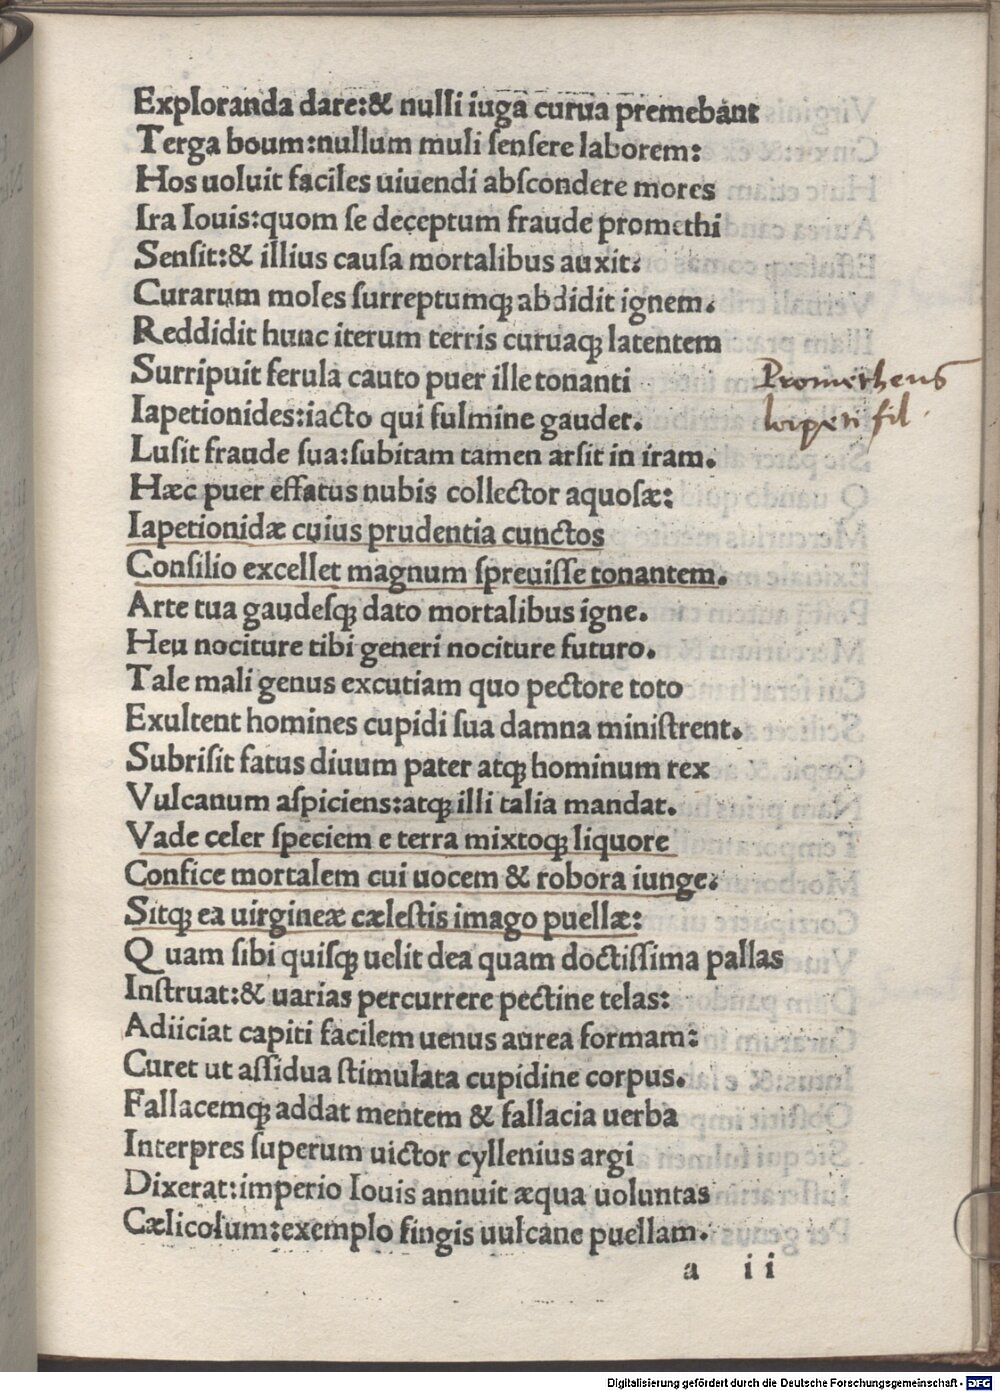 Exploranda dare:& nulli iuga curua premebant
Terga boum:nullum muli ſenſere laborem:
Hos uoluit faciles uiuendi abſcondere mores
Ira Iouis:quom ſe deceptum fraude promethi
Senſit:& illius cauſa mortalibus auxit:
Curarum moles ſurreptumqꝫ abdidit ignem.
Reddidit hunc iterum terris curuaqꝫ latentem
Surripuit ferula cauto puer ille tonanti
Prometheus
Iapetionides:iacto qui fulmine gaudet.
Iapeti fil.
Luſit fraude ſua:ſubitam tamen arſit in iram.
Hæc puer effatus nubis collector aquoſæ:
Iapetionidæ cuius prudentia cunctos
Conſilio excellet magnum ſpreuiſſe tonantem.
Arte tua gaudeſqꝫ dato mortalibus igne.
Heu nociture tibi generi nociture futuro.
Tale mali genus excutiam quo pectore toto
Exultent homines cupidi ſua damna miniſtrent.
Subriſit fatus diuum pater atqꝫ hominum rex
Vulcanum aſpiciens:atqꝫ illi talia mandat.
Vade celer ſpeciem e terra mixtoqꝫ liquore
Confice mortalem cui uocem & robora iunge:
Sitqꝫ ea uirgineæ cæleſtis imago puellæ:
Quam ſibi quiſqꝫ uelit dea quam doctiſſima pallas
Inſtruat:& uarias percurrere pectine telas:
Adiiciat capiti facilem uenus aurea formam:
Curet ut aſſidua ſtimulata cupidine corpus.
Fallacemqꝫ addat mentem & fallacia uerba
Interpres ſuperum uictor cyllenius argi
Dixerat:imperio Iouis annuit æqua uoluntas
Cælicolum:exemplo fingis uulcane puellam.
a ii
Digitalisierung gefördert durch die Deutsche Forschungsgemeinschaft - DFG